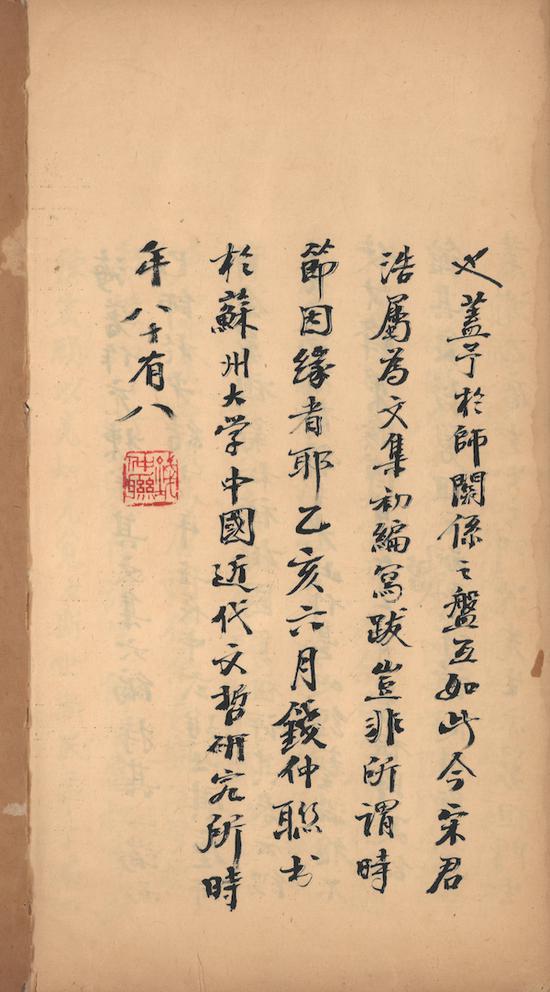 也蓋予於師關係之盤互如此今宋君
浩屬為文集初編寫跋豈非所謂時
節因緣者耶乙亥六月錢仲聯書
於蘇州大学中國近代文哲研究所時
年八十有八
錢仲聯